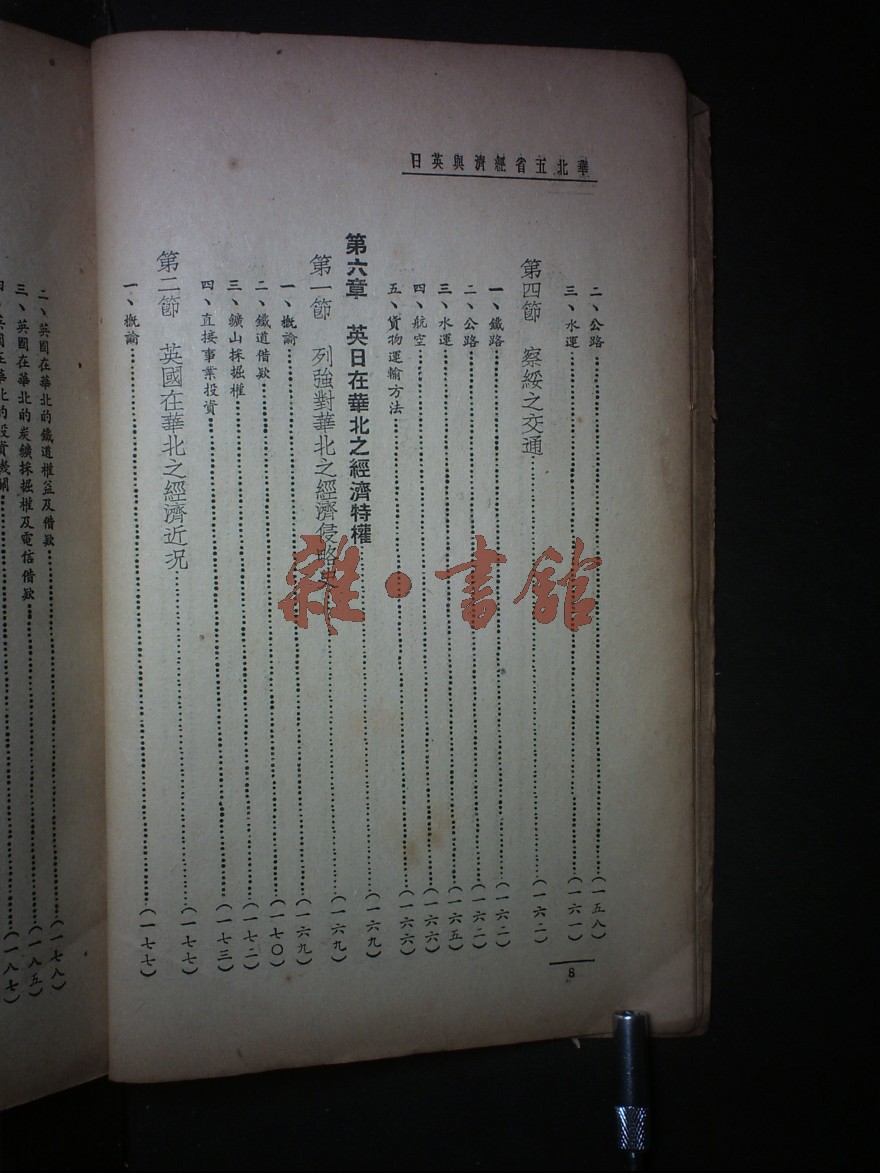 華北五省經濟與英日
二、公路……(一五八)
三、水運……(一六一)
第四節　察綏之交通……(一六二)
一、鐵路……(一六二)
二、公路……(一六二)
三、水運……(一六五)
四、航空……(一六六)
五、貨物運輸方法……(一六六)
第六章　英日在華北之經濟特權……(一六九)
第一節　列強對華北之經濟侵略史……(一六九)
一、概論……(一六九)
二、鐵道借款……(一七〇)
三、鑛山採掘權……(一七二)
四、直接事業投資……(一七三)
第二節　英國在華北之經濟近况……(一七七)
一、概論……(一七七)
8
二、英國在華北的鐵道權益及借款……(一七八)
三、英國在華北的炭鑛採掘權及電信借款……(一八五)
四、英國在華北的投資機關……(一八七)
雜·書館